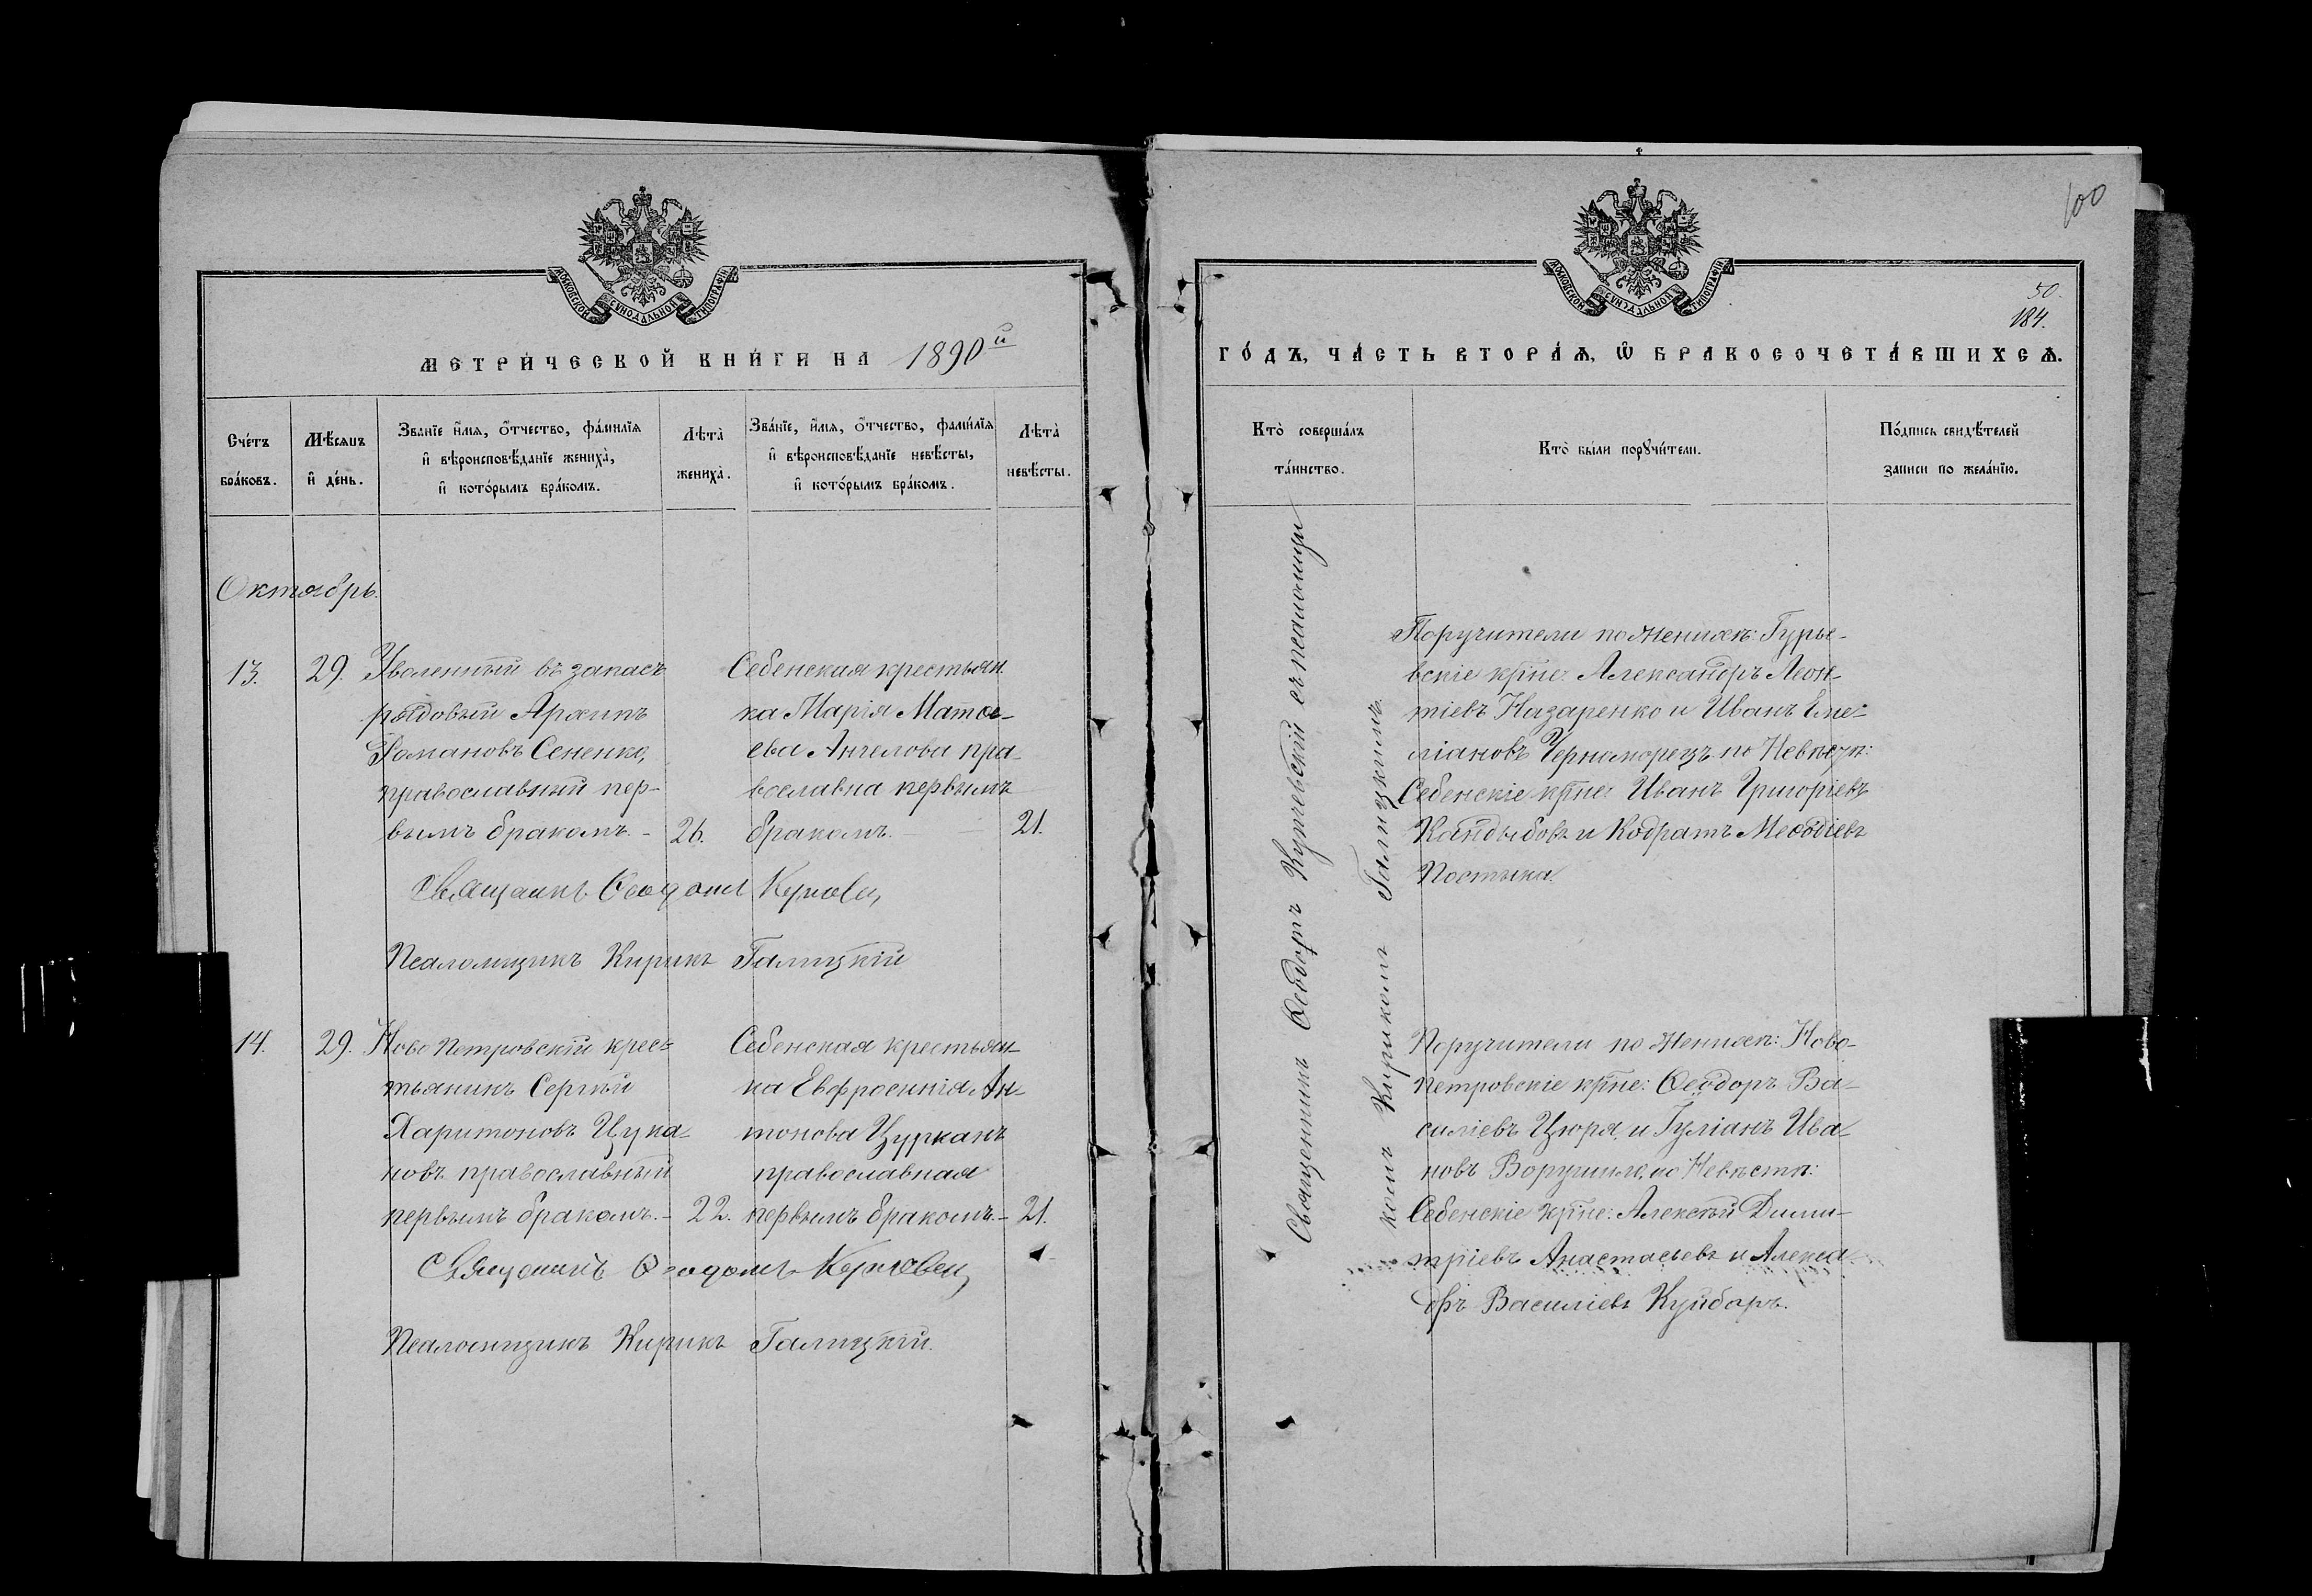 100
50.
184.
МОСКОВСКОЙ СѴНОДАЛЬНОЙ ТИПОГРАФІИ
МЕТРИ́ЧЕСКОЙ КНИ́ГИ НА 1890й
Сче́тъ бра́ковъ.
Мѣ́сяцъ и҆ де́нь.
Зва́нїе и҆́мѧ, ѻ҆́тчество, фамилїѧ
и҆ вѣроисповѣ́данїе жениха̀,
и҆ кото́рымъ бра́комъ.
Лѣта̀ жениха̀.
Зва́нїе, и҆́мѧ, ѻ҆́тчество, фамилїѧ
и҆ вѣроисповѣ́данїе невѣ́сты,
и҆ кото́рымъ бра́комъ.
Лѣта̀ невѣ́сты.
Октябрь.
13.
29.
Уволенный въ запасъ
рядовый Архипъ
Романовъ Сененко,
православный пер-
вымъ бракомъ. -
26.
Себенская крестьян.
ка Марія Матѳ-
ева Ангелова пра-
вославна первымъ
бракомъ.
21.
Священикъ Ѳеодоръ
Псаломщикъ Кирикъ Галицкій
14.
29.
Ново Петровскій крес-
тьянинъ Сергѣй
Харитоновъ Цука-
новъ православный
первымъ бракомъ. -
22.
Себенская крестьян-
ка Евфросинія Ан-
тонова Цурканъ
православная
первымъ бракомъ. -
21.
Священикъ Ѳеодоръ
Псаломщикъ Кирикъ Галицкій.
МОСКОВСКОЙ СѴНОДАЛЬНОЙ ТИПОГРАФІИ
ГО́ДЪ, ЧА́СТЬ ВТОРА́Ѧ, Ѡ҆ БРАКОСОЧЕТА́ВШИХСѦ.
Кто̀ соверша́лъ та́инство.
Кто̀ бы́ли порꙋчи́тели.
По́дпись свидѣ́телей
записи по жела́нїю.
Священникъ Ѳеодоръ съ псаломщи
комъ Кирикомъ Галицкимъ
Поручители по Женихѣ: Гурье-
вскіе кр̃не: Александръ Леон-
тіевъ Назаренко и Иванъ Еме-
ліановъ Черноморецъ по Невѣстѣ:
Себенскіе кр̃не: Иванъ Григоріевъ
Кандыбовъ и Кодратъ Меѳодіевъ
Постыка.
Поручители по Женихѣ: Ново-
петровскіе кр̃не: Ѳеодоръ Ва-
силіевъ Цюря, и Гуліанъ Ива-
новъ по Невѣстѣ:
Себенскіе кр̃не: Алексѣй Дими-
тріевъ Анастасьевъ и Алекса-
дръ Василіевъ Куйбарь.